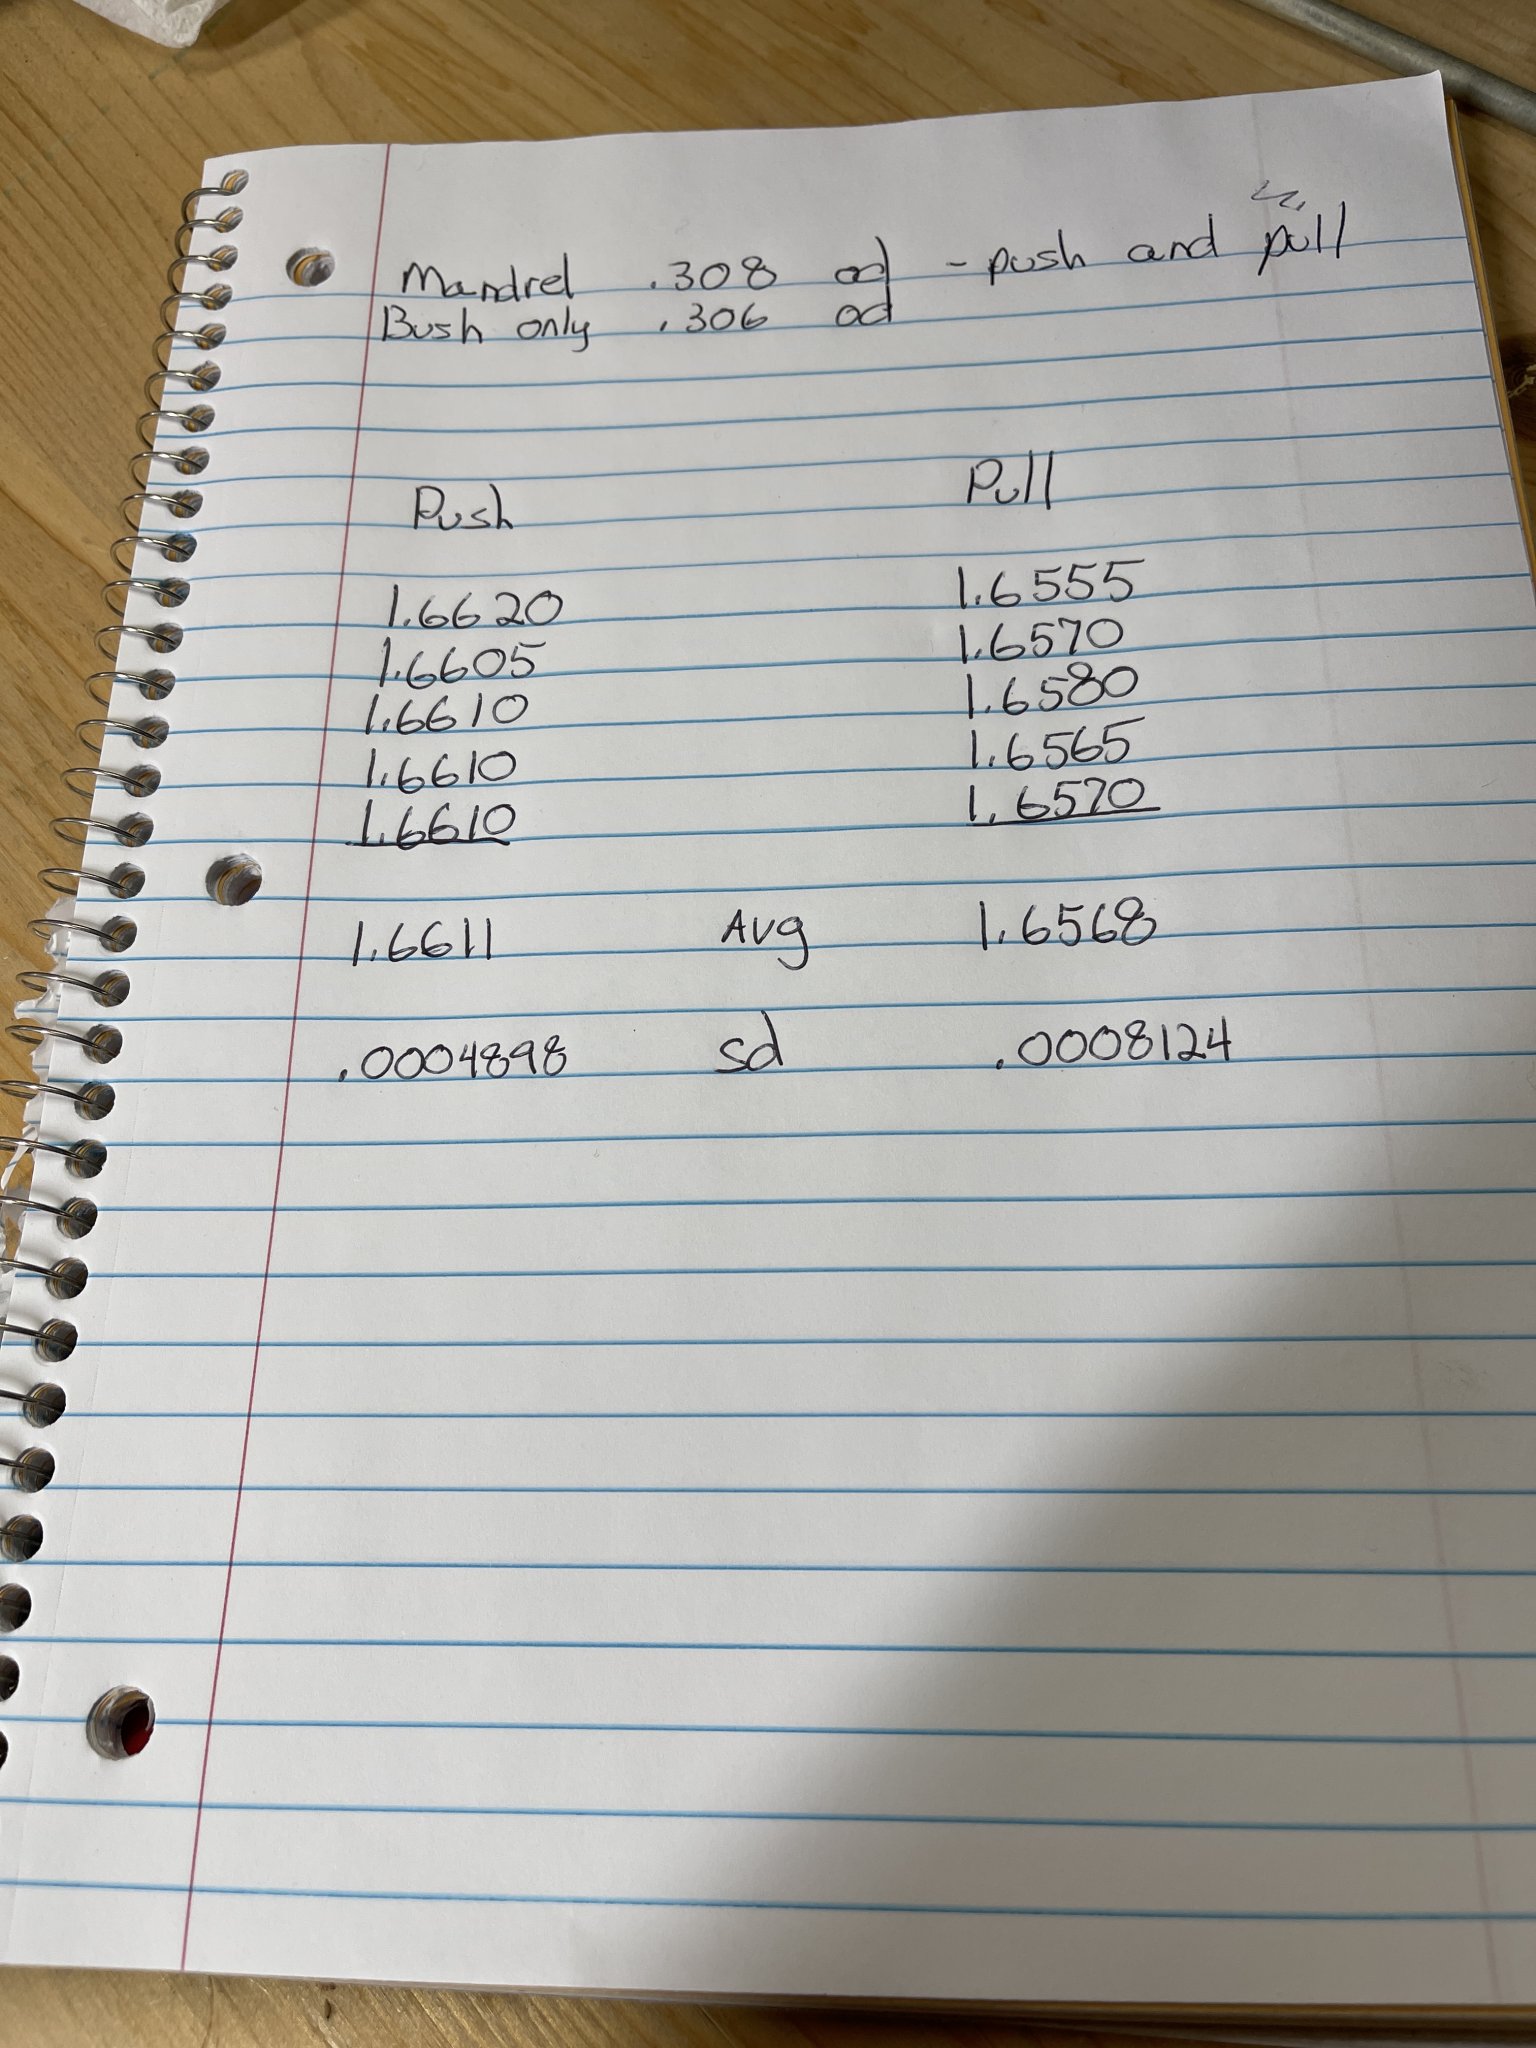 Mandrel .308 od - push and pull
Bush only .306 od
Push Pull
1.6620 1.6555
1.6605 1.6570
1.6610 1.6580
1.6610 1.6565
1.6610 1.6570
1.6611 Avg 1.6568
.0004898 sd .0008124